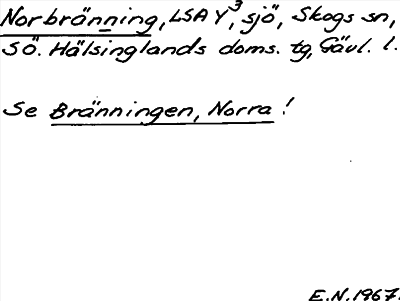 Norbränning, LSA Y³, sjö, Skogs sn,
SÖ. Hälsinglands doms. tg, Gävl. l.
Se Bränningen, Norra!
E.N. 1967.